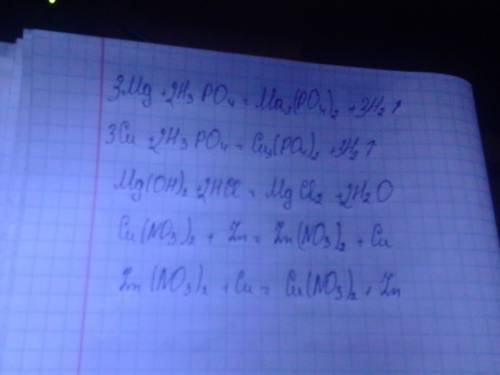 3Mg + 2H₃PO₄ = Mg₃(PO₄)₂ + 3H₂↑
3Cu + 2H₃PO₄ = Cu₃(PO₄)₂ + 3H₂↑
Mg(OH)₂ + 2HCl = MgCl₂ + 2H₂O
Cu(NO₃)₂ + Zn = Zn(NO₃)₂ + Cu
Zn(NO₃)₂ + Cu = Cu(NO₃)₂ + Zn